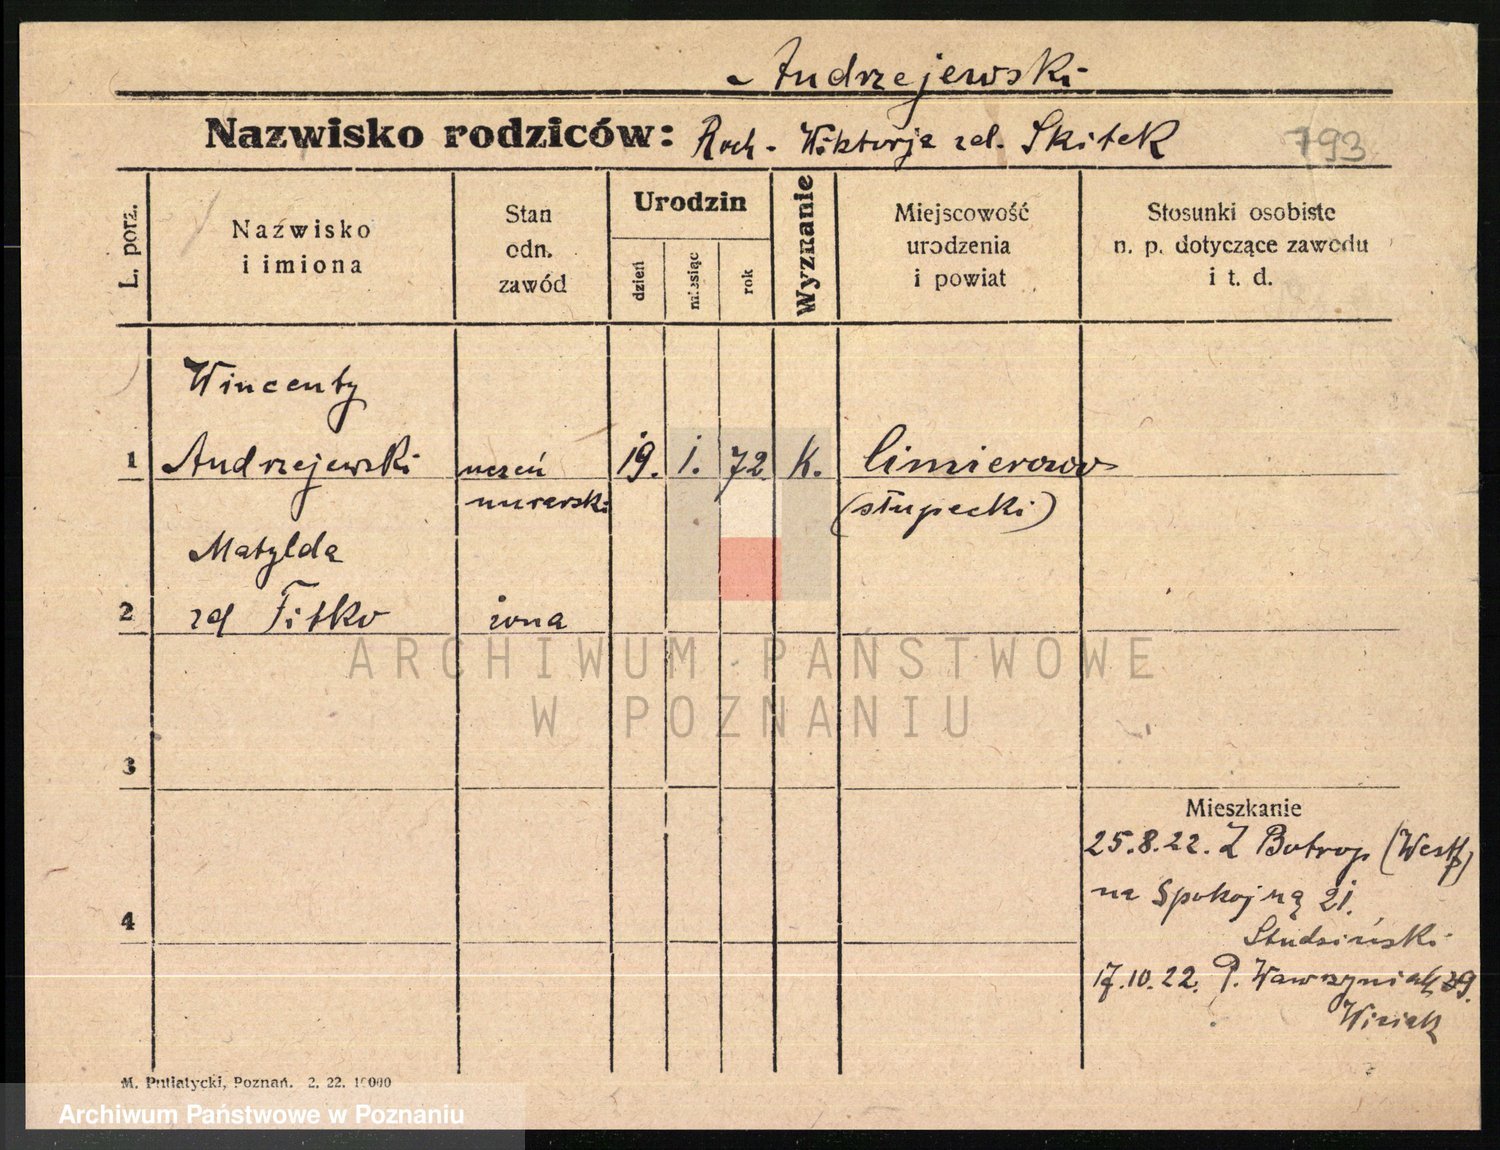 Andrzejewski
Nazwisko rodziców: Roch - Wiktorja zd. Skitek
793
L. porz.
Nazwisko
i imiona
Stan
odn.
zawód
Urodzin
dzień
miesiąc
rok
Wyznanie
Miejscowość
urodzenia
i powiat
Stosunki osobiste
n. p. dotyczące zawodu
i t. d.
Wincenty
1 Andrzejewski uczeń 19. 1. 72. K.
murarski (słupecki)
Matylda
2 zd Fitko żona
ARCHIWUM PAŃSTWOWE
W POZNANIU
3
Mieszkanie
25.8.22. Z Botrop (Westf)
na Spokojną 21.
4
Studziński
17.10.22. P. Wawrzyniaka 39.
M. Putiatycki, Poznań. 2. 22. 10000
Archiwum Państwowe w Poznaniu